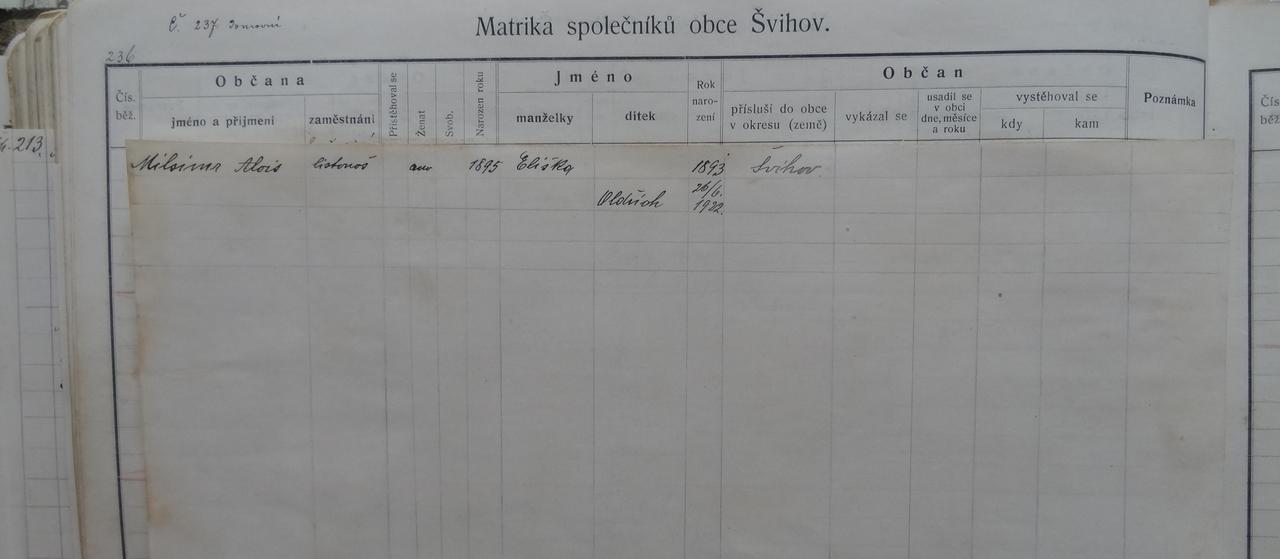 Č. 237 Domovní
Matrika společníků obce Švihov.
236
Občana
Přistěhoval se
Ženat
Svob.
Narozen roku
Jméno
Rok naro-zení
Občan
Poznámka
Čís. běž.
jméno a příjmení
zaměstnání
manželky
dítek
přísluší do obce v okresu (země)
vykázal se
usadil se v obci dne, měsíce a roku
vystěhoval se
kdy
kam
Čís
běž
213.
Alois listonoš ano 1895 Eliška 1893 Švihov.
Oldřich 26/6. 1922.